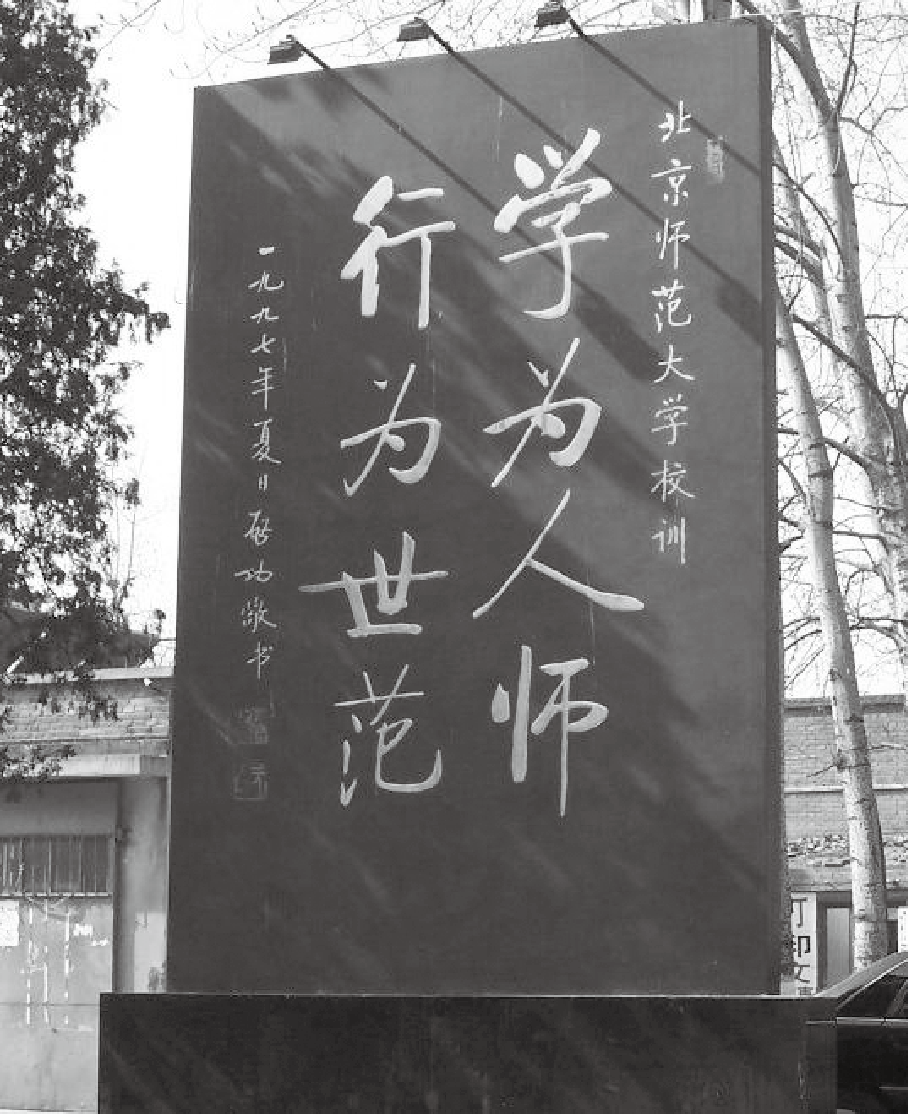 北京师范大学校训
学为人师
行为世范
一九九七年夏日启功敬书
打印文